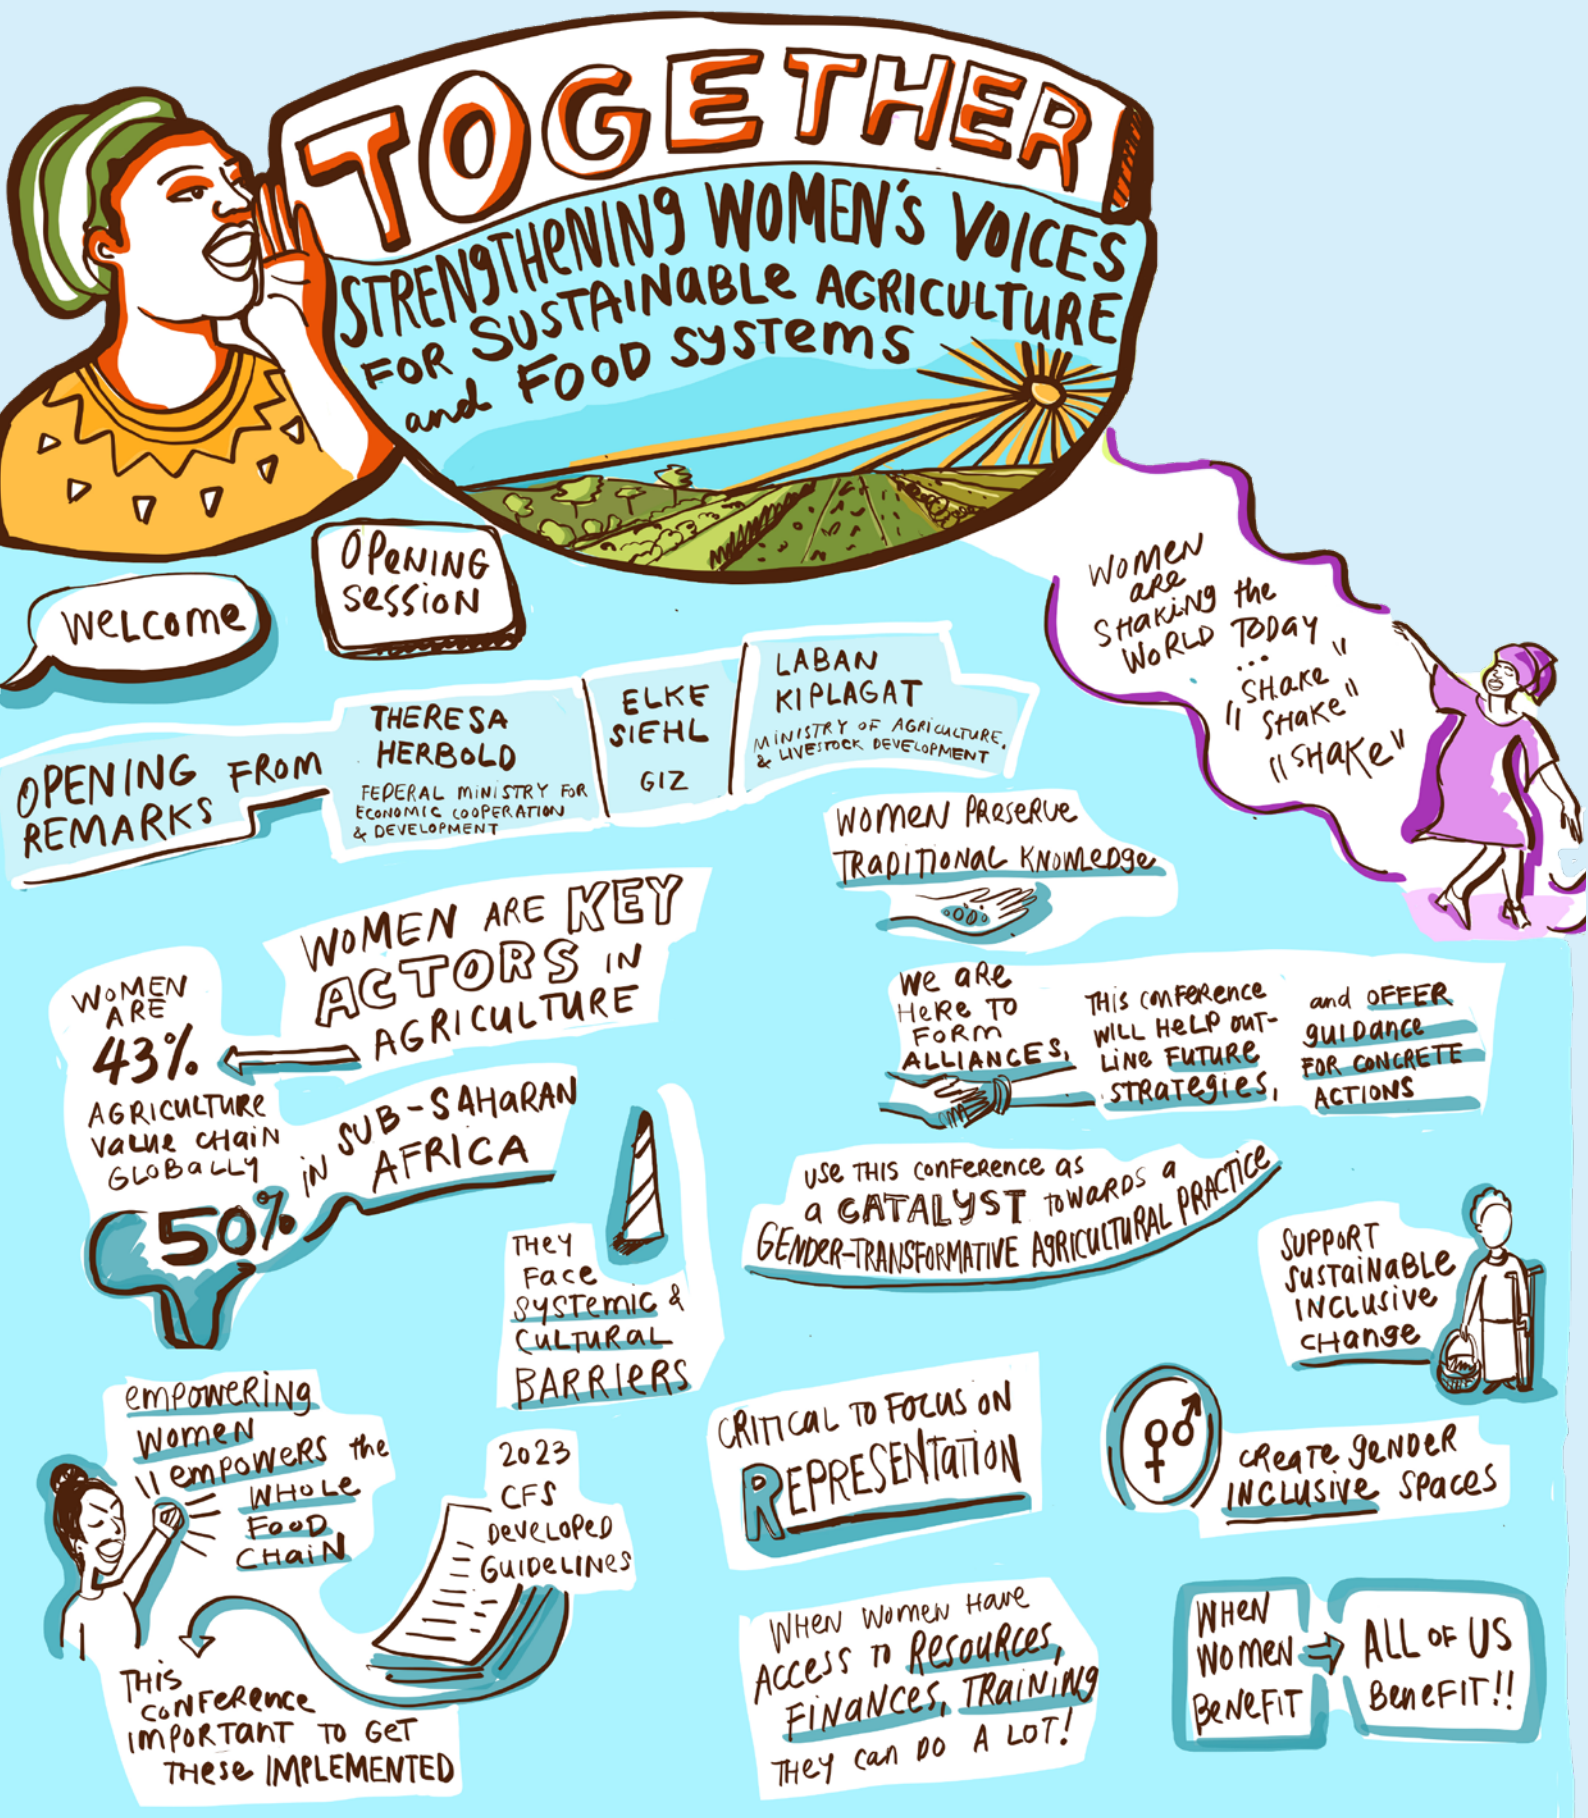 TOGETHER
STRENGTHENING WOMEN'S VOICES
FOR SUSTAINABLE AGRICULTURE
and FOOD SYSTEMS
OPENING
SESSION
WELCOME
WOMEN
are
SHAKING the
WORLD TODAY
...
"SHAKE"
"SHAKE"
"SHAKE"
OPENING
REMARKS
FROM
THERESA
HERBOLD
FEDERAL MINISTRY FOR
ECONOMIC COOPERATION
& DEVELOPMENT
ELKE
SIEHL
GIZ
LABAN
KIPLAGAT
MINISTRY OF AGRICULTURE,
& LIVESTOCK DEVELOPMENT
WOMEN PRESERVE
TRADITIONAL KNOWLEDGE
WOMEN ARE KEY
ACTORS IN
AGRICULTURE
WOMEN
ARE
43%
AGRICULTURE
VALUE CHAIN
GLOBALLY
50%
IN
SUB-SAHARAN
AFRICA
WE ARE
HERE TO
FORM
ALLIANCES,
THIS CONFERENCE
WILL HELP OUT-
LINE FUTURE
STRATEGIES,
and OFFER
GUIDANCE
FOR CONCRETE
ACTIONS
THEY
FACE
SYSTEMIC &
CULTURAL
BARRIERS
USE THIS CONFERENCE as
a CATALYST TOWARDS a
GENDER-TRANSFORMATIVE AGRICULTURAL PRACTICE
SUPPORT
SUSTAINABLE
INCLUSIVE
CHANGE
EMPOWERING
WOMEN
"EMPOWERS the
WHOLE
FOOD
CHAIN
2023
CFS
DEVELOPED
GUIDELINES
THIS
CONFERENCE
IMPORTANT TO GET
THESE IMPLEMENTED
CRITICAL TO FOCUS ON
REPRESENTATION
CREATE GENDER
INCLUSIVE SPACES
WHEN WOMEN HAVE
ACCESS TO RESOURCES,
FINANCES, TRAINING
THEY can DO A LOT!
WHEN
WOMEN
BENEFIT
ALL OF US
BENEFIT!!